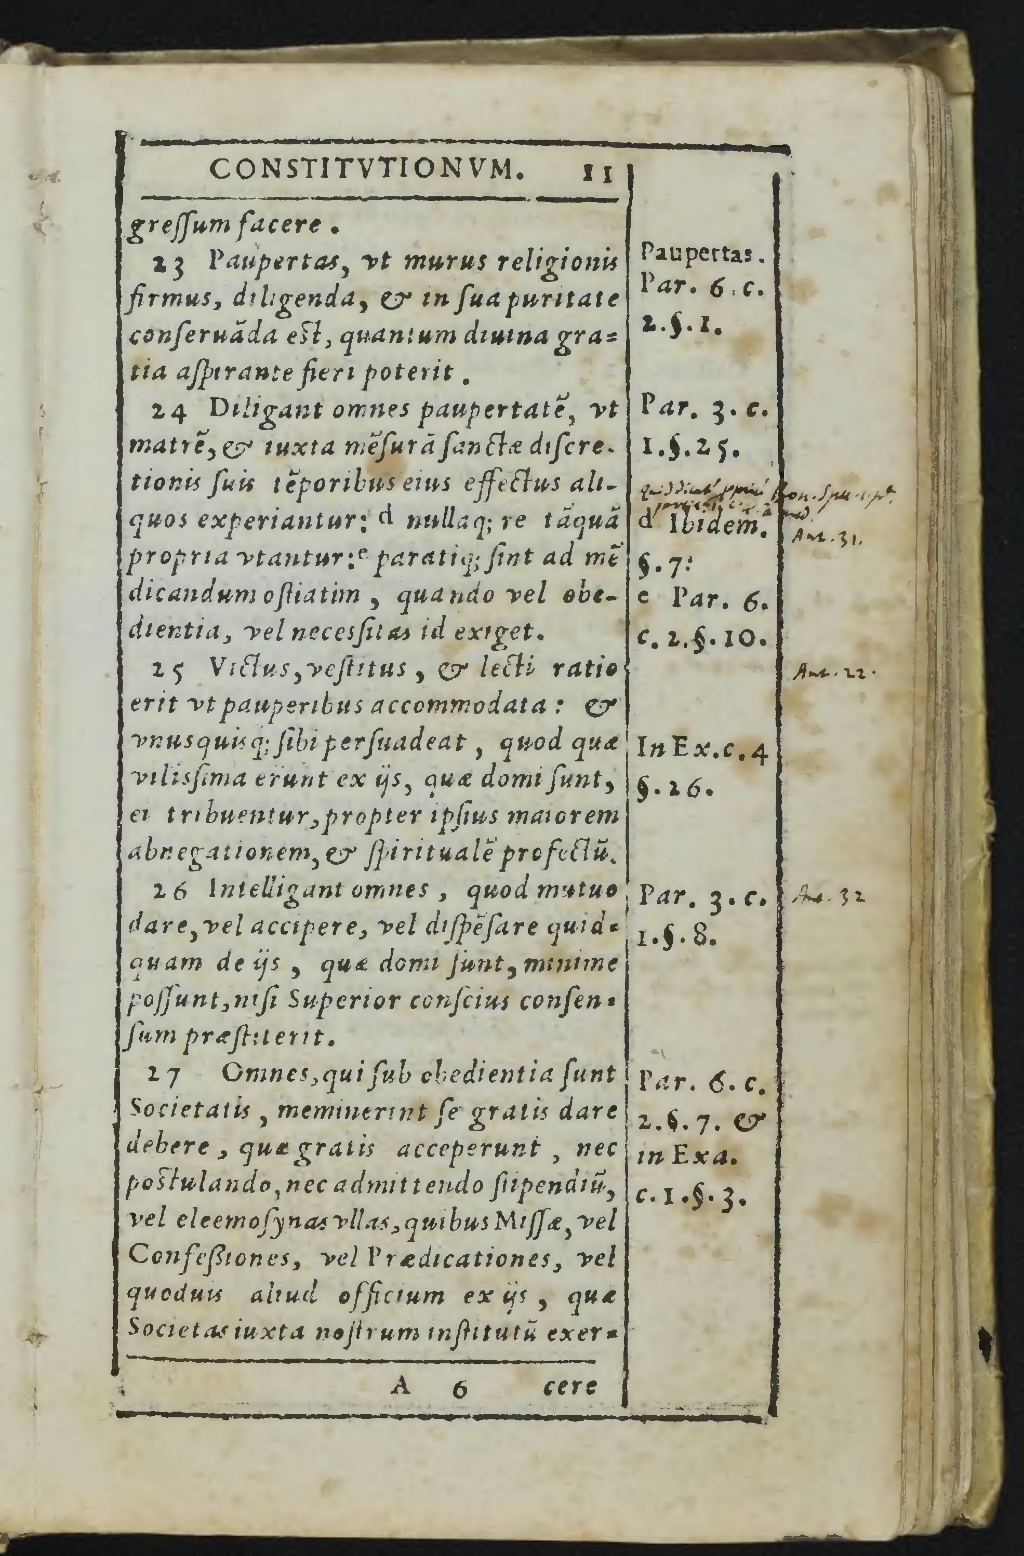 CONSTITVTIONVM. 11
greſſum facere.
23 Paupertas, vt murus religionis
firmus, diligenda, & in ſua puritate
conſeruãda eſt, quantum diuina gra=
tia aſpirante fieri poterit.
24 Diligant omnes paupertatẽ, vt
matrẽ, & iuxta mẽſurã ſanctæ diſcre-
tionis ſuis tẽporibus eius effectus ali-
quos experiantur: d nullaq; re tãquã
propria vtantur: e paratiq; ſint ad mẽ
dicandum oſtiatim, quando vel obe-
dientia, vel neceſſitas id exiget.
25 Victus, veſtitus, & lecti ratio
erit vt pauperibus accommodata: &
vnusquiſq; ſibi perſuadeat, quod quæ
viliſſima erunt ex ijs, quæ domi ſunt,
ei tribuentur, propter ipſius maiorem
abnegationem, & ſpiritualẽ profectũ.
26 Intelligant omnes, quod mutuo
dare, vel accipere, vel diſpẽſare quid=
quam de ijs, quæ domi ſunt, minime
poſſunt, niſi Superior conſcius conſen=
ſum præſtiterit.
27 Omnes, qui ſub obedientia ſunt
Societatis, meminerint ſe gratis dare
debere, quæ gratis acceperunt, nec
poſtulando, nec admittendo ſtipendiũ,
vel eleemoſynas vllas, quibus Miſſæ, vel
Confeſſiones, vel Prædicationes, vel
quoduis aliud officium ex ijs, quæ
Societas iuxta noſtrum inſtitutũ exer=
A 6 cere
Paupertas.
Par. 6. c.
2.§.1.
Par. 3. c.
1.§.25.
d Ibidem.
§.7:
e Par. 6.
c. 2.§.10.
In Ex.c.4
§.26.
Par. 3. c.
1.§.8.
Par. 6. c.
2.§.7. &
in Exa.
c.1.§.3.
31.
22.
32